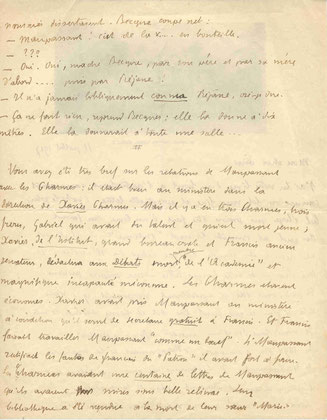 nommés dissertaient. Becque coupe net :
— Maupassant ! c'est de la x... en bouteille.
— ???
— Oui. Oui, mache Becque, par son père et par sa mère
d'abord .... puis par Réjane.
— Il n'a jamais bibliquement connu Réjane,
— Ça ne fait rien, reprend Becque ; elle l'a donné à dix
mètres. Elle la donnerait à toute une salle ...
Vous avez été très bref sur les relations de Maupassant
avec les Charmes : il était bien au ministère dans la
direction de Xavier Charmes. Mais il y a eu trois Charmes, trois
frères, Gabriel qui avait du talent et qui est mort jeune,
Xavier, de l'Institut, grand bureaucrate et Francis ancien
sénateur, rédacteur aux Débats, mort de l'"Académie" et
magnifique incapacité méconnue. Les Charmes étaient
Xavier avait pris Maupassant au ministère
à condition qu'il serait de secrétaire gratuit à Francis. Et Francis
faisait travailler Maupassant "comme un bœuf". Si Maupassant
les fautes de français du "Patron" il avait fort à faire.
Les Charmes avaient une centaine de lettres de Maupassant
qu'ils avaient mises sous belle reliure. Leur
bibliothèque a été vendue à la mort de leur sœur "Marie"